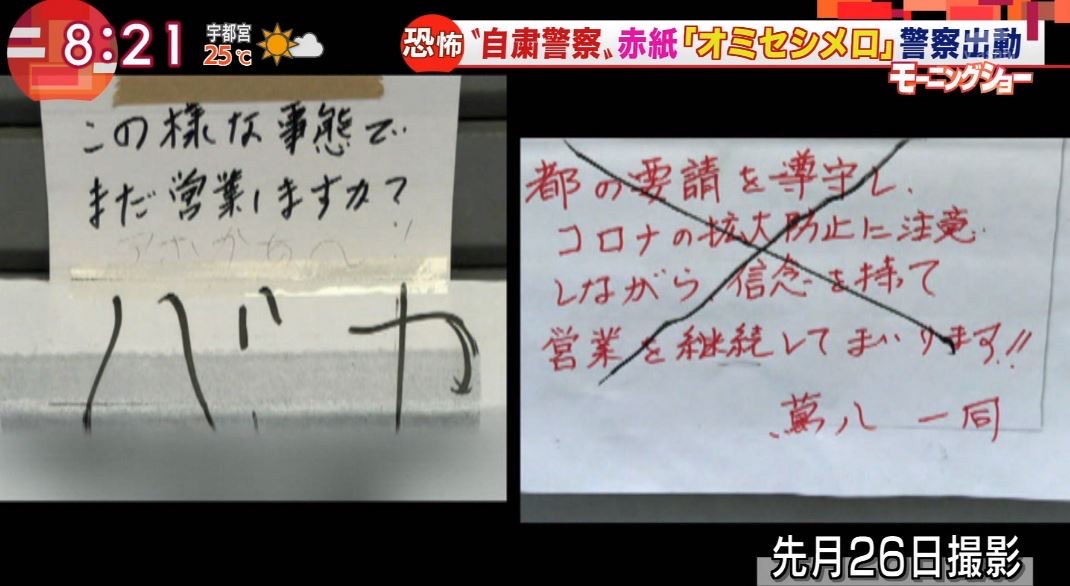 8:21
宇都宮
25℃
恐怖〝自粛警察〟赤紙「オミセシメロ」警察出動
モーニングショー
この様な事態で
まだ営業しますか?
バカ
都の要請を導守し、
コロナの拡大防止に注意
しながら信念を持て
営業を継続してまいります!!
萬八 一同
先月26日撮影